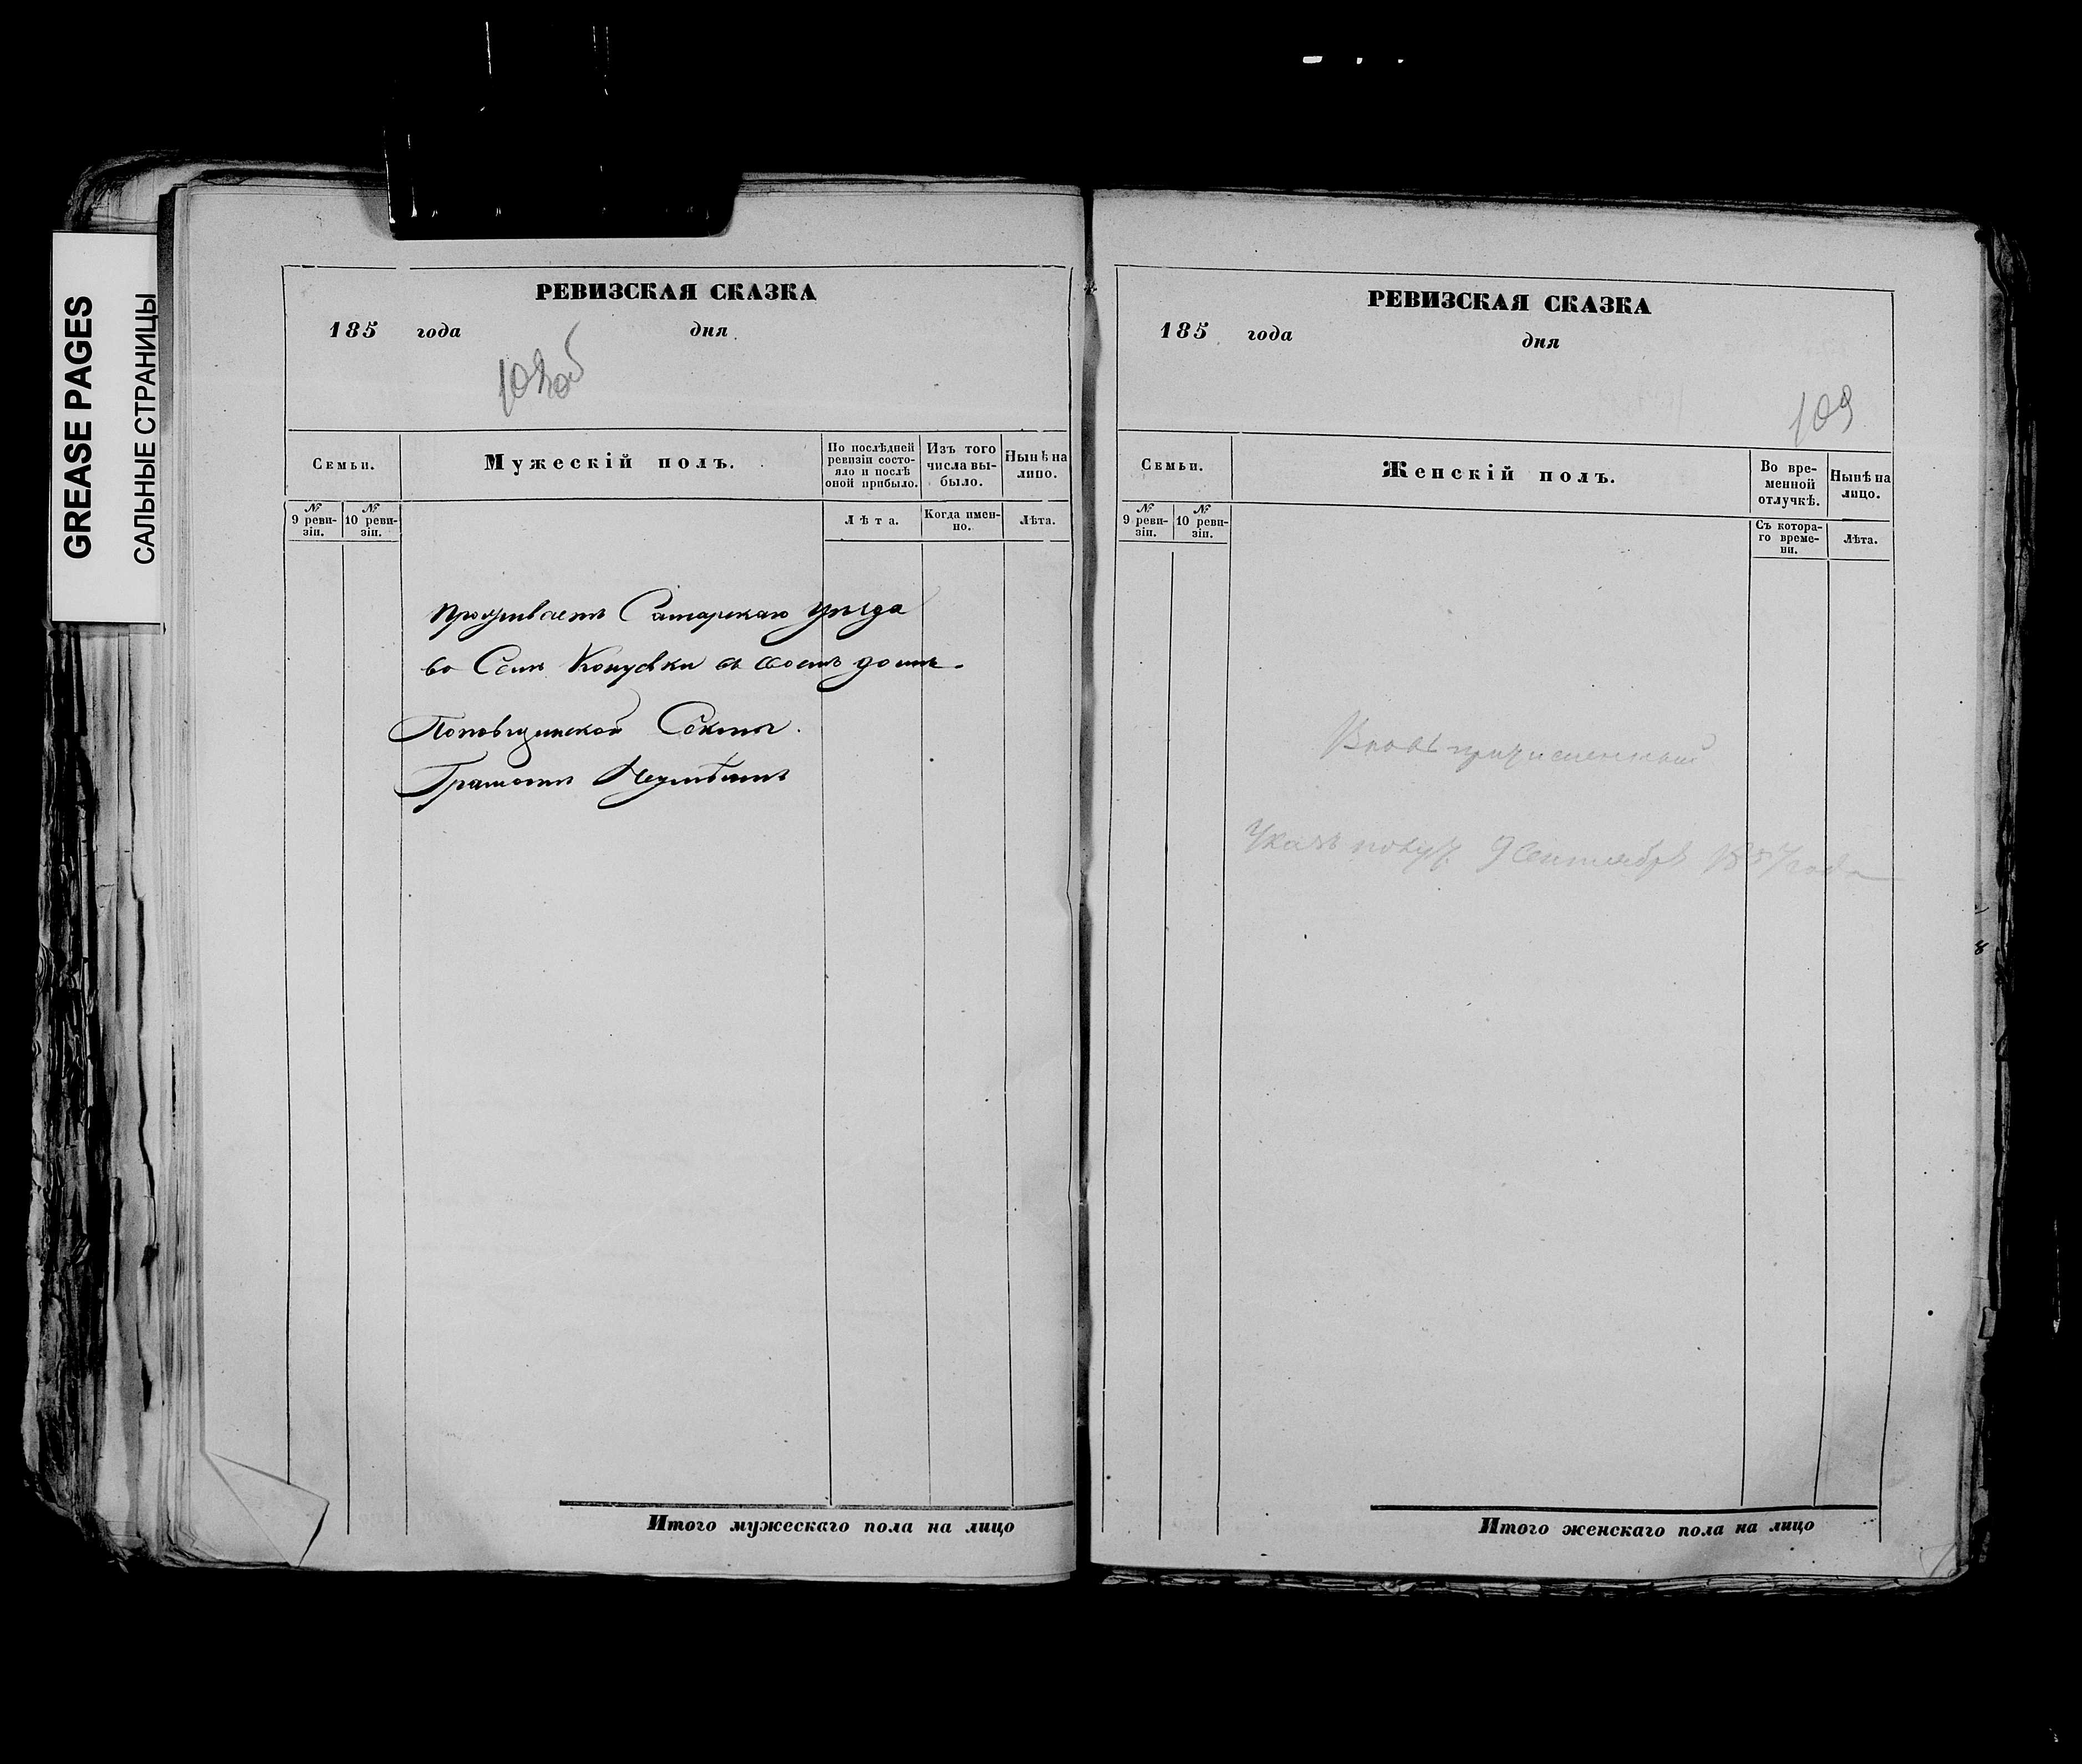 GREASE PAGES
САЛЬНЫЕ СТРАНИЦЫ
РЕВИЗСКАЯ СКАЗКА
185 года дня
108об
Семьи.
Мужескій полъ.
По послѣдней ревизіи состояло и послѣ оной прибыло.
Изъ того числа выбыло.
Нынѣ на лицо.
№ 9 ревизіи.
№ 10 ревизіи.
Лѣта.
Когда именно.
Лѣта.
Проживаетъ Самарскаго уѣзда
во Селѣ въ своемъ домѣ.
Поповщинской Секты.
Грамотѣ Неумѣетъ
Итого мужескаго пола на лицо
РЕВИЗСКАЯ СКАЗКА
185 года дня
109
Семьи.
Женскій полъ.
Во временной отлучкѣ.
Нынѣ на лицо.
№ 9 ревизіи.
№ 10 ревизіи.
Съ котораго времени.
Лѣта.
Вновь причисленный
Указъ 9 Сентября 1857 года
Итого женскаго пола на лицо